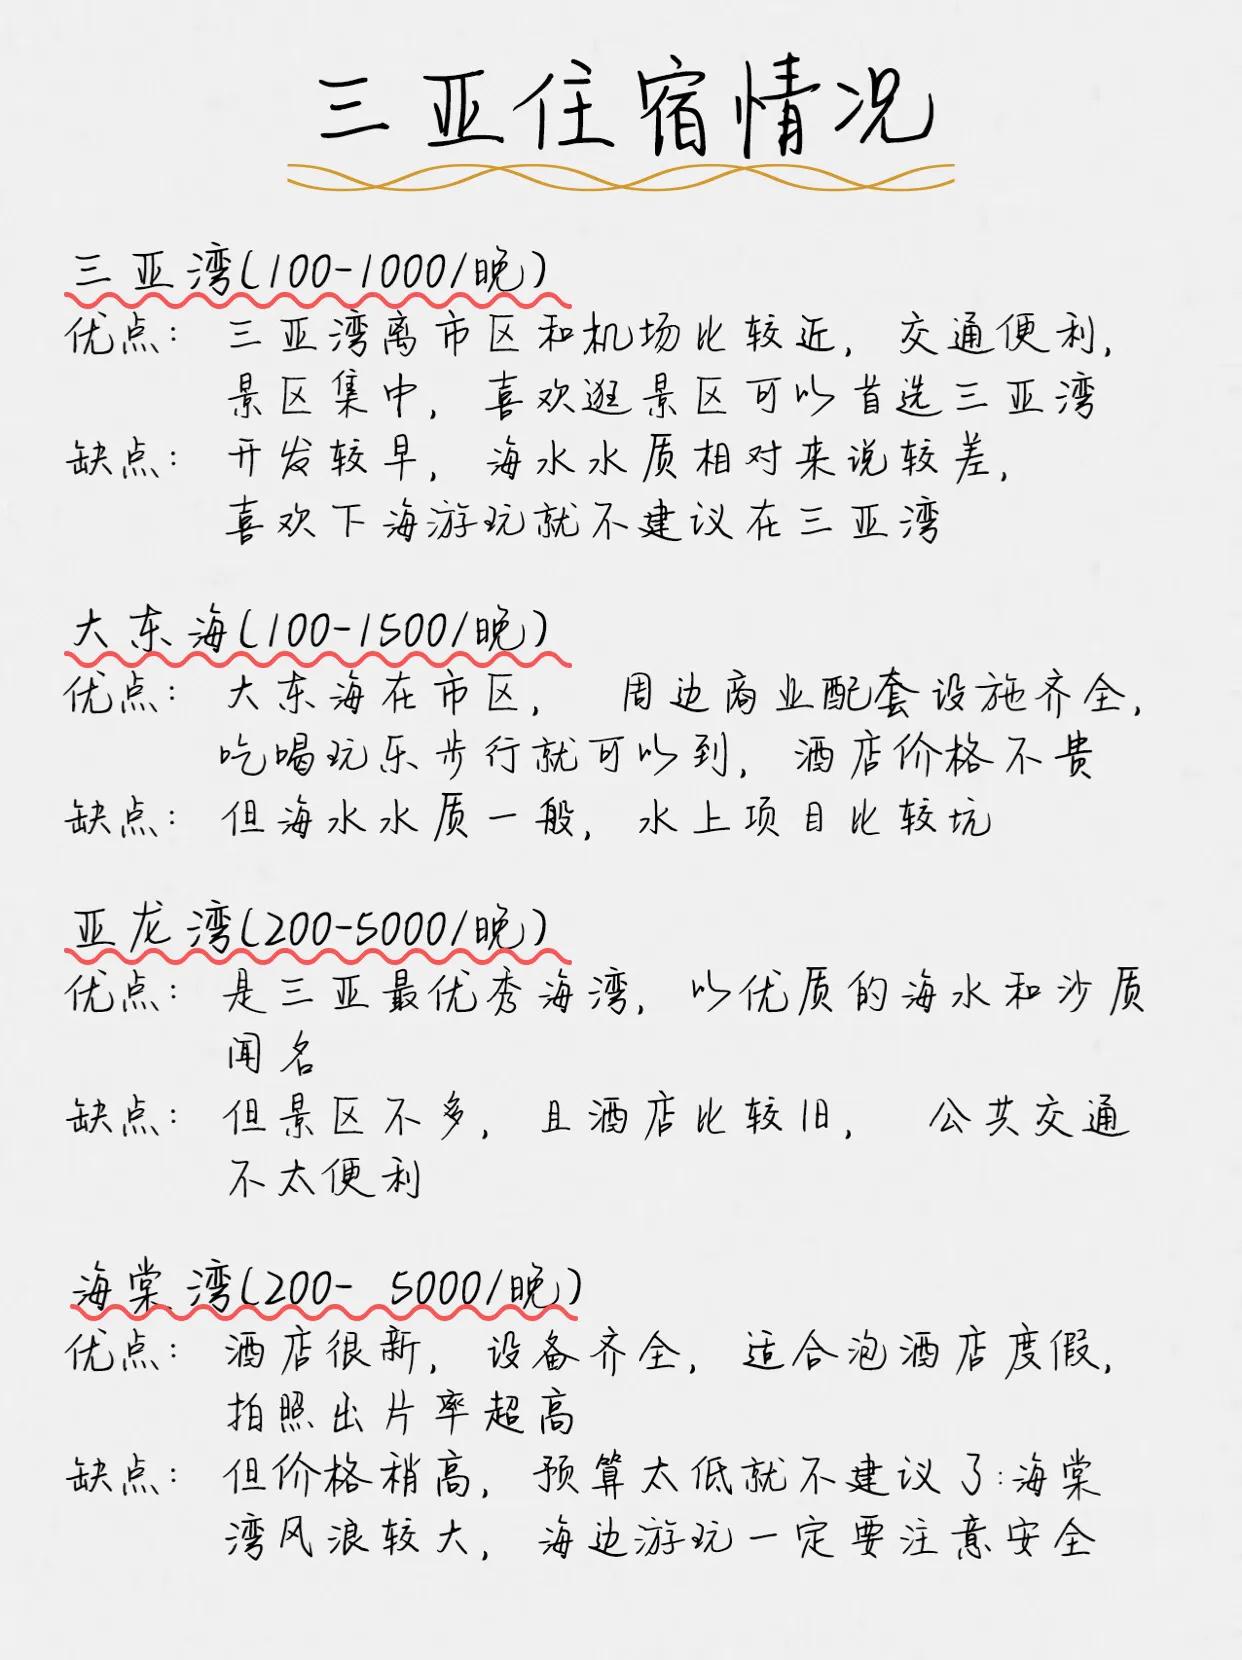 三亚住宿情况
三亚湾(100-1000/晚)
优点: 三亚湾离市区和机场比较近, 交通便利,
景区集中, 喜欢逛景区可以首选三亚湾
缺点: 开发较早, 海水水质相对来说较差,
喜欢下海游玩就不建议在三亚湾
大东海(100-1500/晚)
优点: 大东海在市区, 周边商业配套设施齐全,
吃喝玩乐步行就可以到, 酒店价格不贵
缺点: 但海水水质一般, 水上项目比较坑
亚龙湾(200-5000/晚)
优点: 是三亚最优秀海湾, 以优质的海水和沙质
闻名
缺点: 但景区不多, 且酒店比较旧, 公共交通
不太便利
海棠湾(200- 5000/晚)
优点: 酒店很新, 设备齐全, 适合泡酒店度假,
拍照出片率超高
缺点: 但价格稍高, 预算太低就不建议了:海棠
湾风浪较大, 海边游玩一定要注意安全